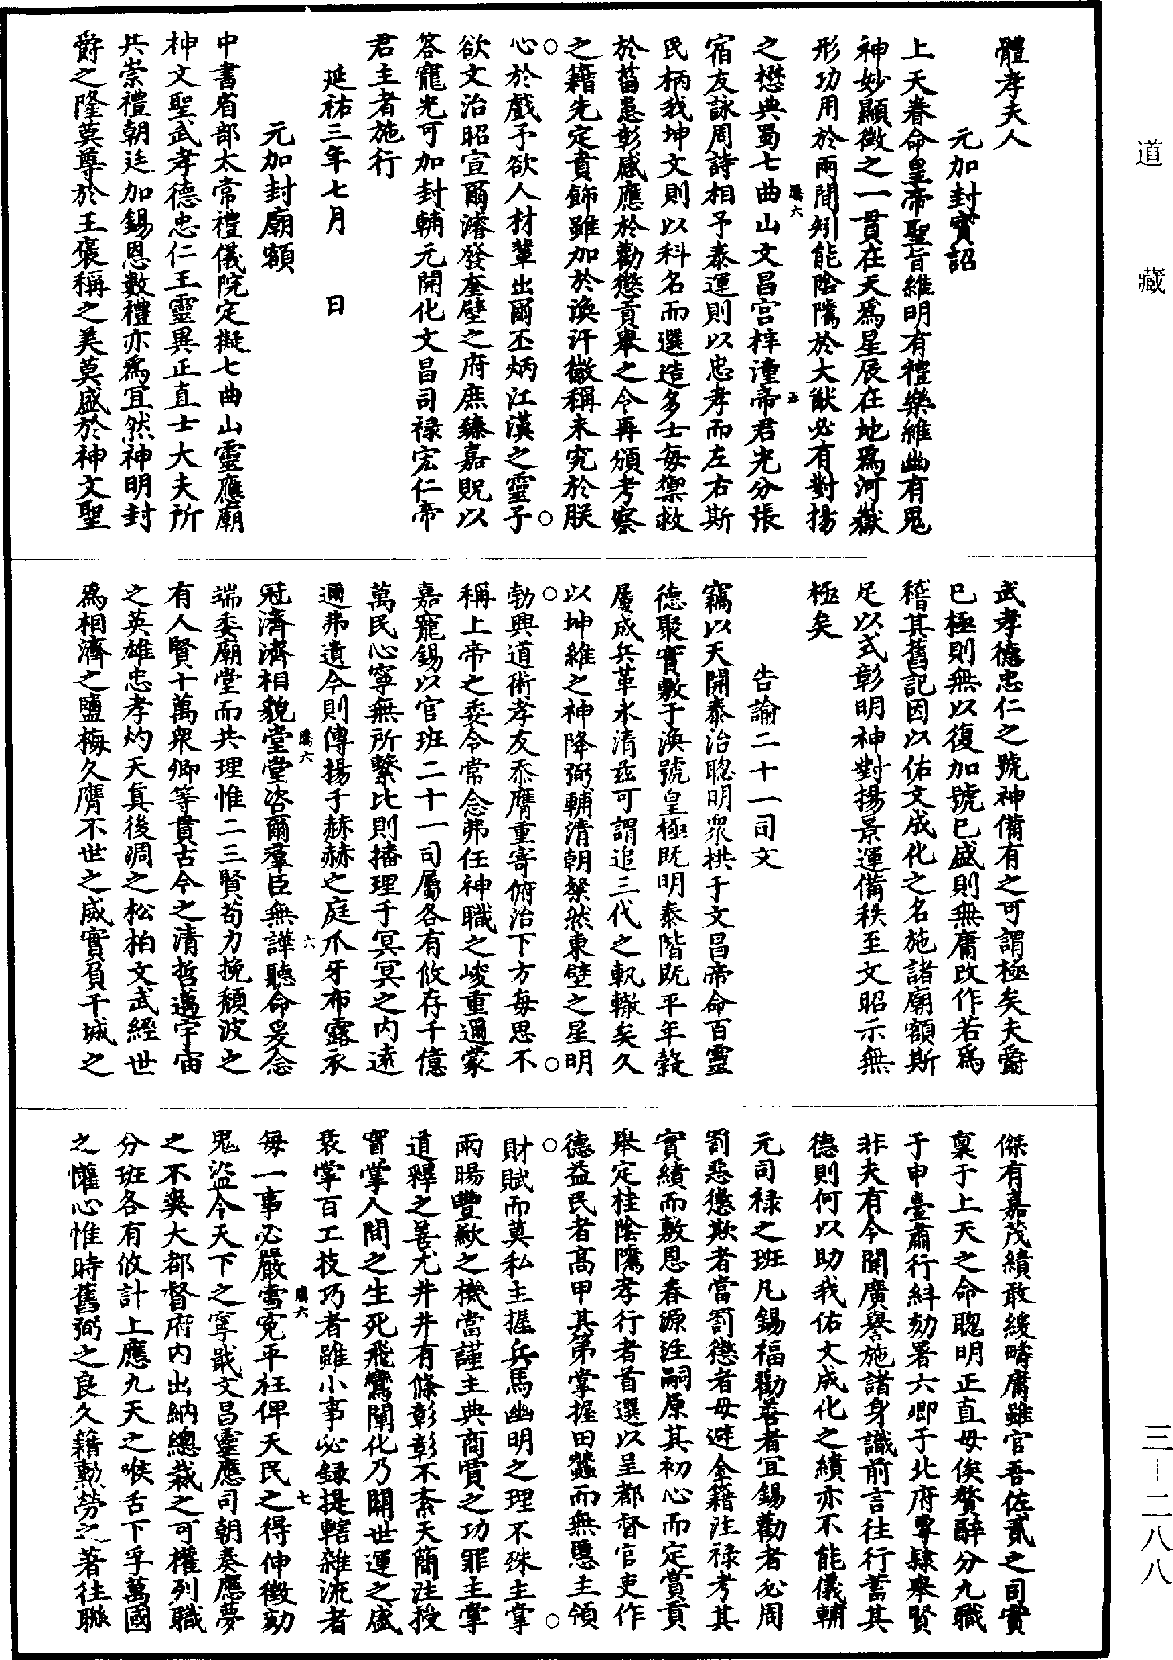 道藏
體孝夫人
元加封寶詔
上天眷命皇帝聖旨維明有禮樂維幽有鬼
神妙顯微之一貫在天爲星辰在地爲河嶽
形功用於兩間矧能陰隲於大猷必有對揚
之懋典蜀七曲山文昌宮梓潼帝君光分張
宿友詠周詩相予泰運則以忠孝而左右斯
民柄我坤文則以科名而選造多士每禦救
於菑患彰感應於勸懲貢舉之令再頒考察
之籍先定賁飾雖加於渙汗徽稱未究於朕
心於戲予欲人材輩出爾丕炳江漢之靈予
欲文治昭宣爾濬發奎壁之府庶臻嘉貺以
答寵光可加封輔元開化文昌司祿宏仁帝
君主者施行
延祐三年七月　日
元加封廟額
中書省部太常禮儀院定擬七曲山靈應廟
神文聖武孝德忠仁王靈異正直士大夫所
共崇禮朝廷加錫恩數禮亦爲宜然神明封
爵之隆莫尊於王褒稱之美莫盛於神文聖
武孝德忠仁之號神備有之可謂極矣夫爵
已極則無以復加號已盛則無庸改作若爲
稽其舊記因以佑文成化之名施諸廟額斯
足以式彰明神對揚景運備秩至文昭示無
極矣
告諭二十一司文
竊以天開泰治聰明眾拱于文昌帝命百靈
德聚實敷于渙號皇極既明泰階既平年穀
屢成兵革永清茲可謂追三代之軌轍矣久
以坤維之神降弼輔清朝粲然東壁之星明
勃興道術孝友忝膺重寄俯治下方每思不
稱上帝之委令常念弗任神職之峻重邇蒙
嘉寵錫以官班二十一司屬各有攸存千億
萬民心寧無所繫比則播理于冥冥之內遠
邇弗遺今則傳揚于赫赫之庭爪牙布露永
冠濟濟相貌堂堂咨爾羣臣無譁聽命爰念
端委廟堂而共理惟二三賢苟力挽頹波之
有人賢十萬衆卿等貫古今之清哲邁宇宙
之英雄忠孝灼天真後凋之松柏文武經世
爲相濟之鹽梅久膺不世之威實負干城之
傑有嘉茂績敢緩疇庸雖官吾佐貳之司實
稟于上天之命聰明正直毋俟贅辭分九職
于中臺肅行糾劾署六卿于北府專隸舉賢
非夫有令聞廣譽施諸身識前言往行蓄其
德則何以助我佑文成化之績亦不能儀輔
元司祿之班凡錫福勸善者宜錫勸者必周
罰惡懲欺者當罰懲者毋避金籍注祿考其
實績而敷恩春源注嗣原其初心而定賞貢
舉定桂陰隲孝行者首選以呈都督官吏作
德益民者高甲其第掌握田蠶而無慝主領
財賦而莫私主握兵馬幽明之理不殊主掌
雨暘豐歉之機當謹主典商賈之功罪主掌
道釋之善尤井井有條彰彰不紊天簡注授
實掌人間之生死飛鸞闡化乃關世運之盛
衰掌百工技巧者雖小事必錄提轄雜流者
每一事必嚴雪冤平枉俾天民之得伸徵劾
鬼盜令天下之寧戢文昌靈應司朝奏應夢
之不爽大都督府內出納總裁之可權列職
分班各有攸計上應九天之喉舌下孚萬國
之懽心惟時舊弼之良久籍勳勞之著往聯
三—二八八